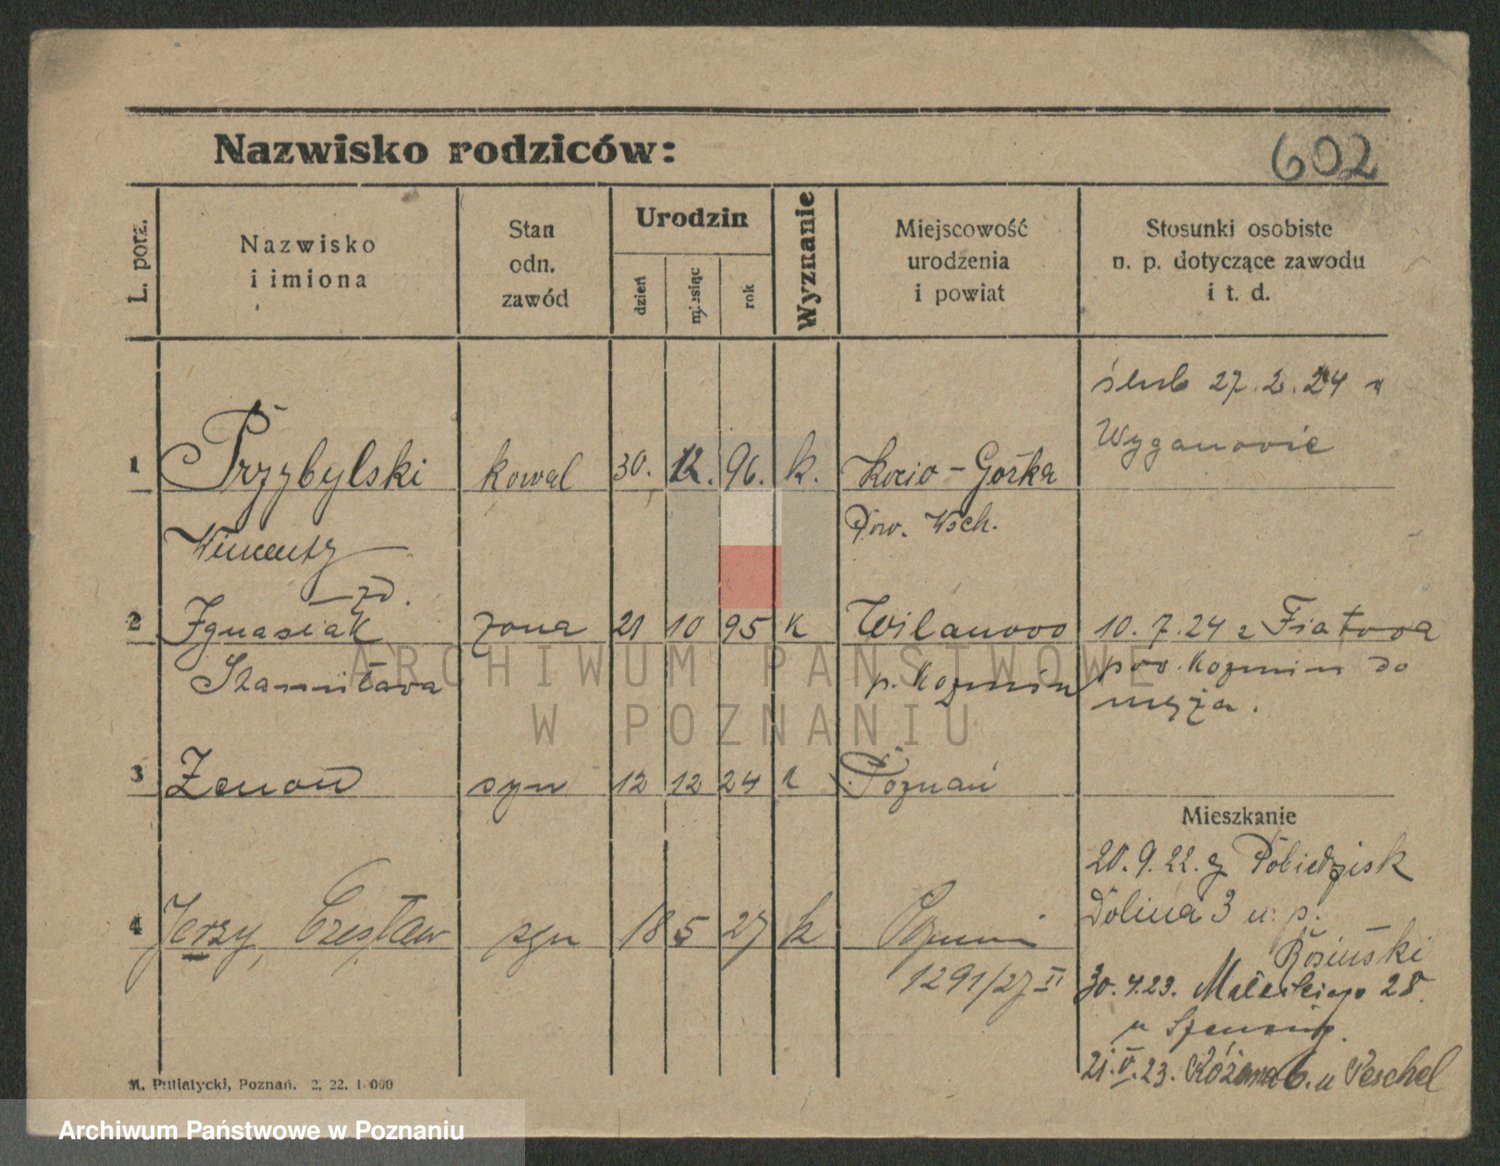 Nazwisko rodziców:
602
L. porz.
Nazwisko
i imiona
Stan
odn.
zawód
Urodzin
dzień
miesiąc
rok
Wyznanie
Miejscowość
urodzenia
i powiat
Stosunki osobiste
n. p. dotyczące zawodu
i t. d.
ślub 27.2.24 w
Wyganowie
1 Przybylski kowal 30. 12. 96. k. Kocio-Górka
Wincenty Pow. Wsch.
zd.
2 Ignasiak żona 21 10 95 k Wilanowo 10.7.24 z
Stanisława p. Kozmin pow. Kozmin do
męża.
3 Zenon syn 12 12 24 k Poznań
Mieszkanie
20.9.22. z Pobiedzisk
Dolina 3 u. p.
4 Jerzy, Czesław syn 18 5 27 k
Rosiński
1291/27 II 30.4.23. 28
u
21.V.23. Różana 6. u Peschel
M. Putiatycki, Poznań. 2. 22. 1 000
ARCHIWUM PAŃSTWOWE
W POZNANIU
Archiwum Państwowe w Poznaniu